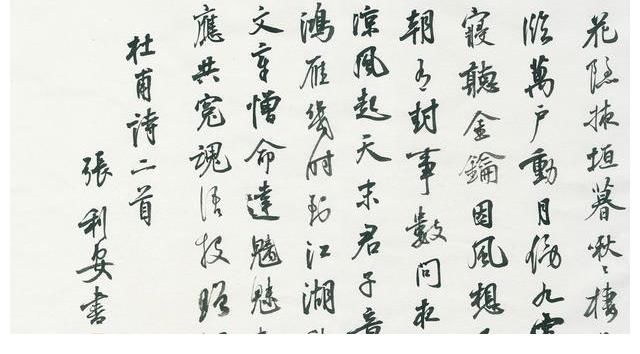 花隐掖垣暮啾々棲
临萬户動月傍九霄
寢聽金鑰因風想
朝有封事數問夜
涼風起天末君子意
鴻雁幾时到江湖
文章憎命達魑魅
應共冤魂語投贈
杜甫詩二首
張利安書